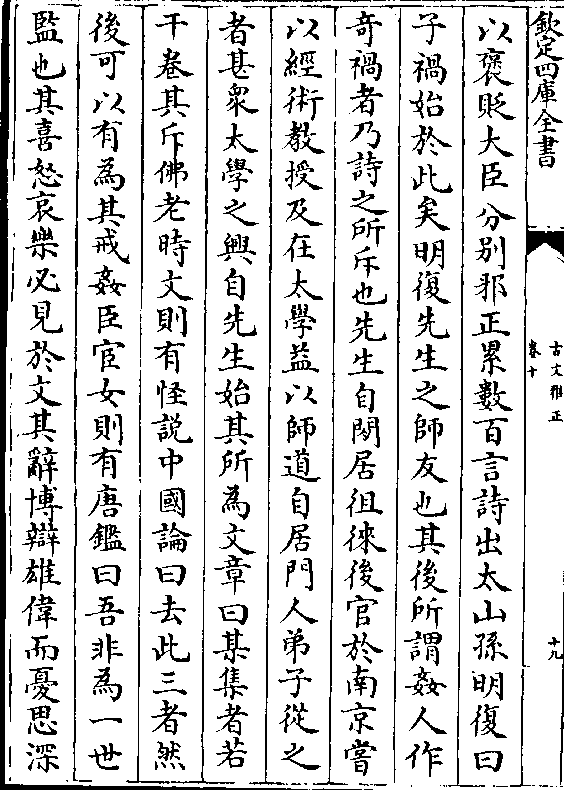 欽定四庫全書
古文雅正
卷十
十九
以襃貶大臣分别邪正累數百言詩出太山孫明復曰
子禍始於此矣明復先生之師友也其後所謂姦人作
奇禍者乃詩之所斥也先生自閑居徂徠後官於南京嘗
以經術教授及在太學益以師道自居門人弟子從之
者甚衆太學之興自先生始其所為文章曰某集者若
干卷其斥佛老時文則有怪説中國論曰去此三者然
後可以有為其戒姦臣宦女則有唐鑑曰吾非為一世
監也其喜怒哀樂必見於文其辭博辯雄偉而憂思深